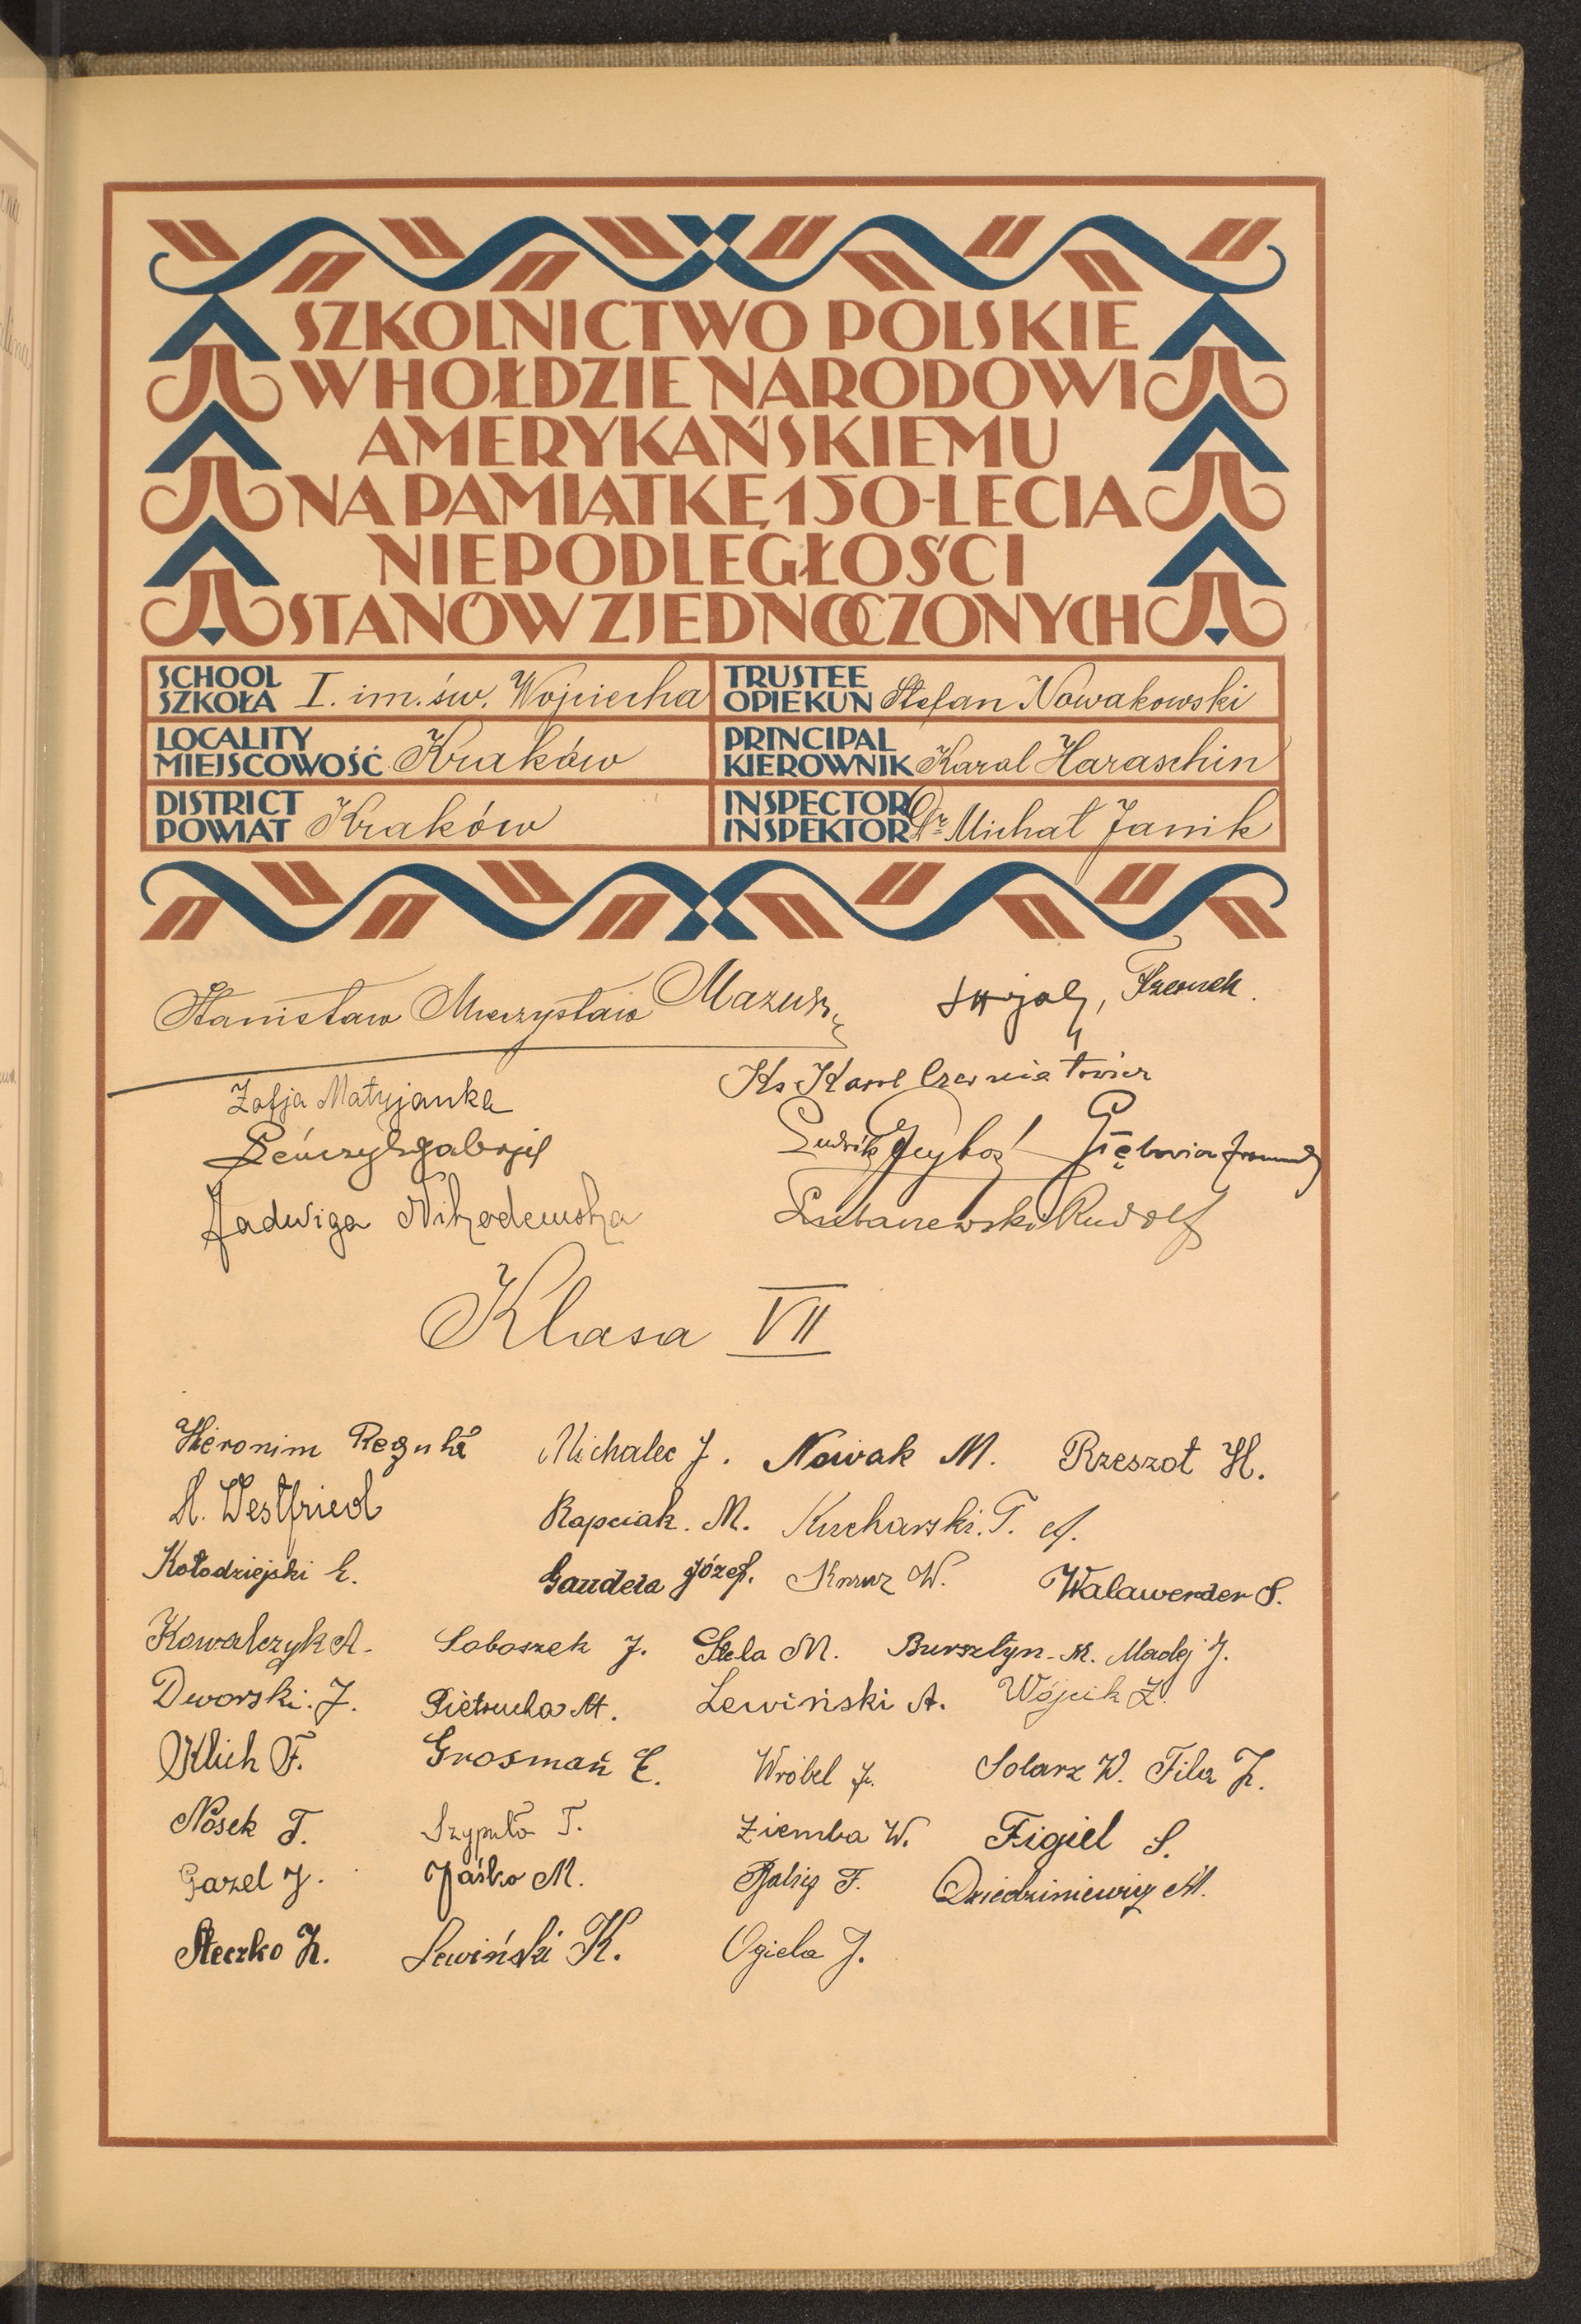 SZKOLNICTWO POLSKIE
W HOŁDZIE NARODOWI
AMERYKAŃSKIEMU
NA PAMIĄTKĘ 150-LECIA
NIEPODLEGŁOŚCI
STANÓW ZJEDNOCZONYCH
SCHOOL
SZKOŁA I. im. św. Wojciecha
TRUSTEE
OPIEKUN Stefan Nowakowski
LOCALITY
MIEJSCOWOŚĆ Kraków
PRINCIPAL
KIEROWNIK Karol Haraschin
DISTRICT
POWIAT Kraków
INSPECTOR
INSPEKTOR Dr Michał Janik
Stanisław Mieczysław Mazur
Zofja Matyjanka
Ks Karol
Gabrjel
Ludwik
Jadwiga Nikodemska
Rudolf
Klasa VII
Hieronim Reguła Michalec J. Nowak M. Rzeszot H.
Westfried Rapciak. M. Kucharski. T. A.
Kołodziejski E. Gaudela Józef. W. Walawender S.
Kowalczyk A. Soboszek J. Stela M. Bursztyn. M. Madej J.
Dworski. J. Pietrucha M. Lewiński A. Wójcik Z.
Klich F. Grosman E. Wróbel J. Solarz W. Fila J.
Nosek T. Szypuła T. Ziemba W. Figiel S.
Gazel J. Jaśko M. F. Dziedziniewicz M.
Steczko Z. Lewiński K. Ogiela J.